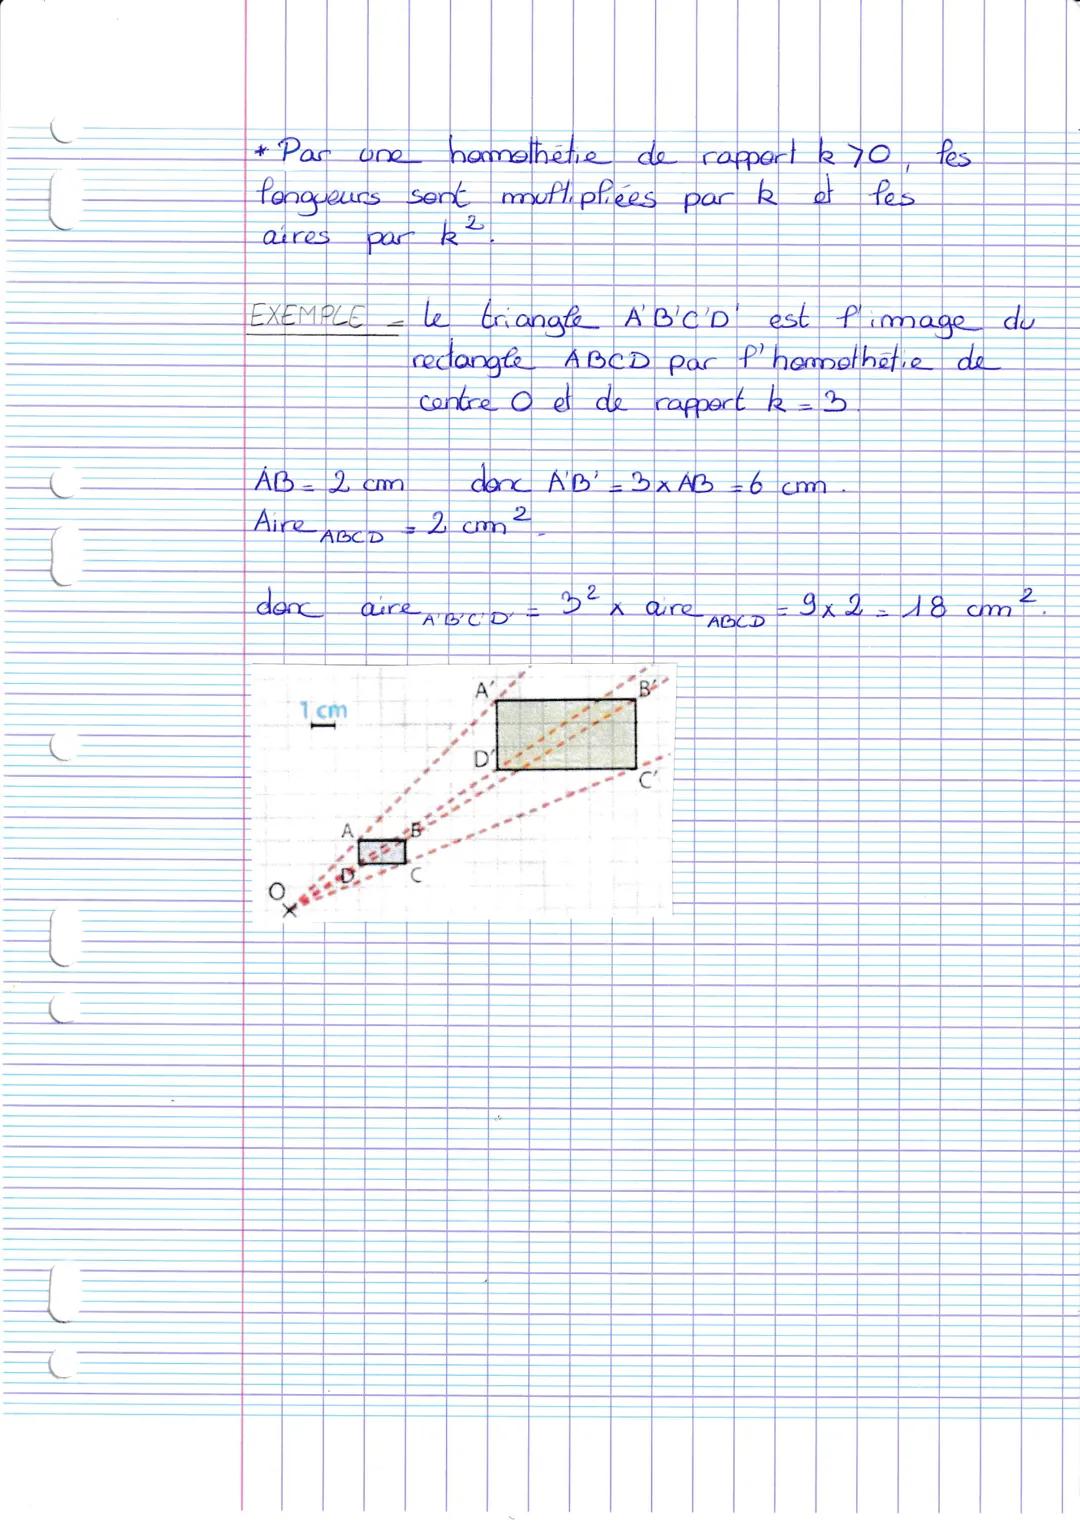 * Par une homothétie de rapport k > 0, les
longueurs sont multipliées par k et les
aires par k².
EXEMPLE = le triangle A'B'C'D' est l'image du
rectangle ABCD par l'homothétie de
centre O et de rapport k = 3.
AB = 2 cm donc A'B' = 3 x AB = 6 cm.
Aire ABCD = 2 cm².
donc aire A'B'C'D' = 3² x aire ABCD = 9 x 2 = 18 cm².
A' B'
1 cm
D' C'
A B
D C
O